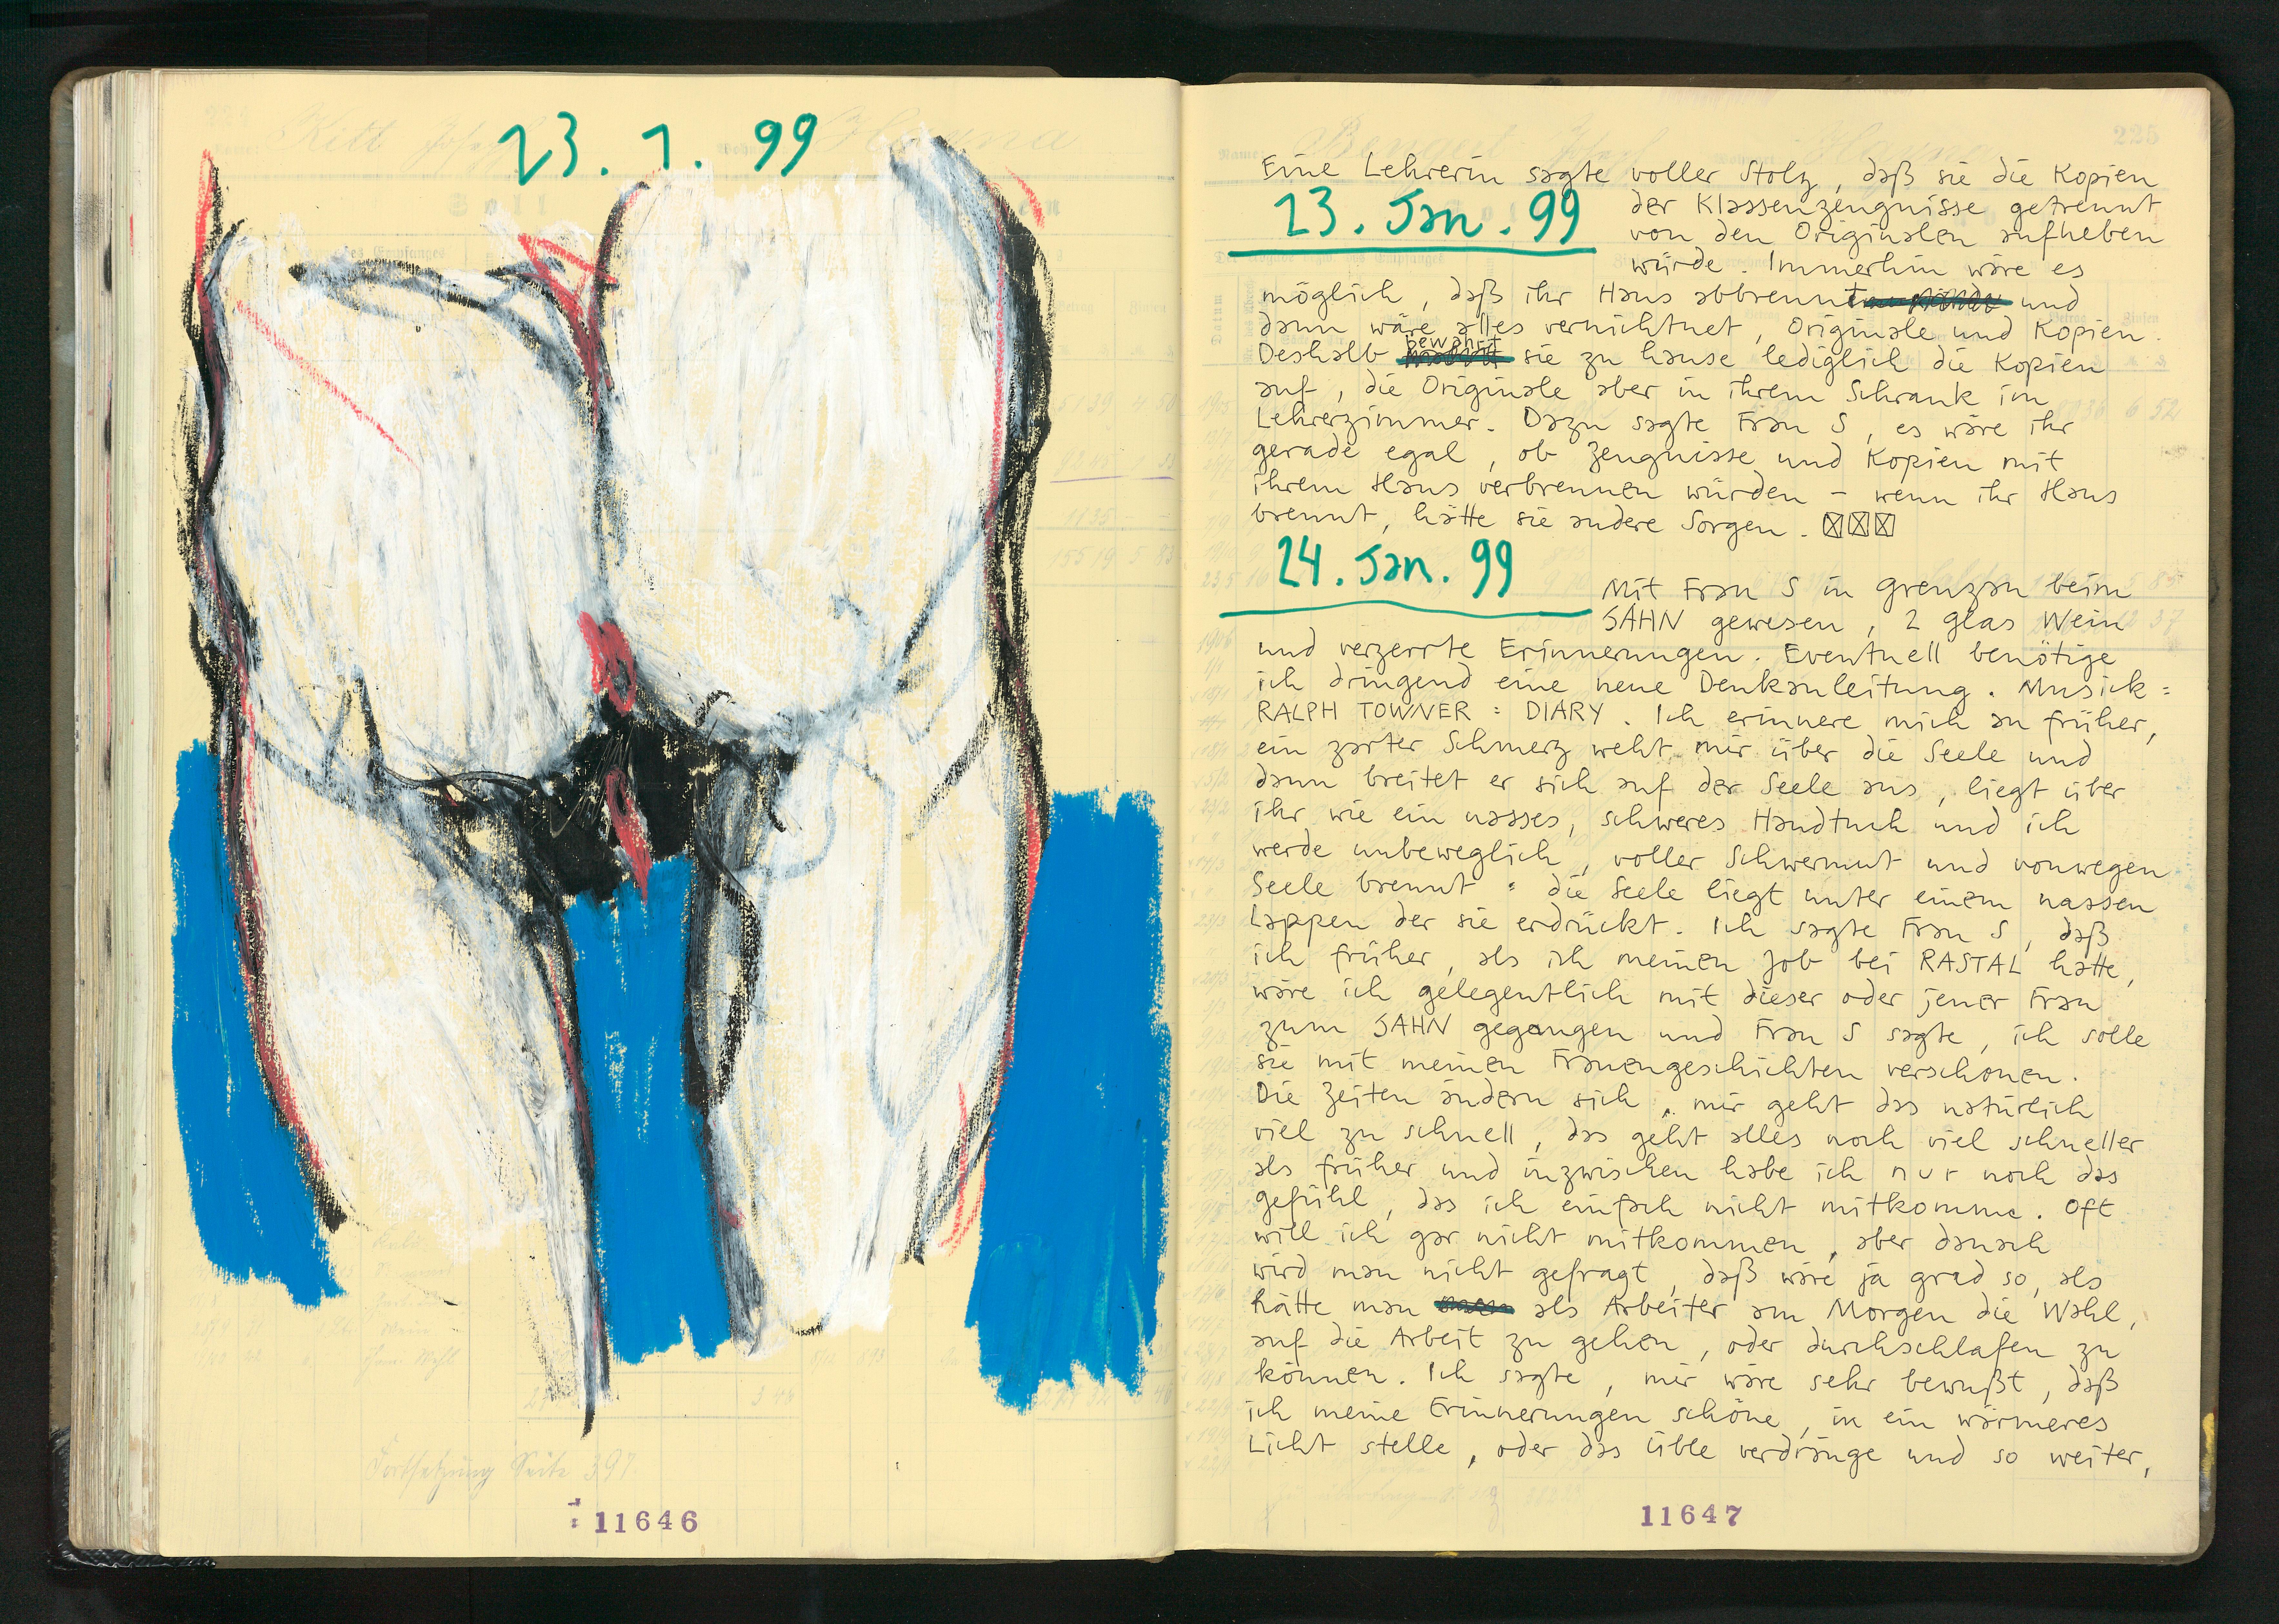 23. 1. 99
Fortsetzung Seite 397
11646
225
Eine Lehrerin sagte voller Stolz, daß sie die Kopien
23. Jan. 99
der Klassenzeugnisse getrennt
von den Originalen aufheben
würde. Immerhin wäre es
möglich, daß ihr Haus abbrennt und
dann wäre alles vernichtnet, Originale und Kopien.
Deshalb bewahrt sie zu hause lediglich die Kopien
auf, die Originale aber in ihrem Schrank im
Lehrerzimmer. Dazu sagte Frau S, es wäre ihr
gerade egal, ob Zeugnisse und Kopien mit
ihrem Haus verbrennen würden - wenn ihr Haus
brennt, hätte sie andere Sorgen.
24. Jan. 99
Mit Frau S in Grenzau beim
SAHN gewesen, 2 Glas Wein
und verzerrte Erinnerungen. Eventuell benötige
ich dringend eine neue Denkanleitung. Musick:
RALPH TOWNER: DIARY. Ich erinnere mich an früher,
ein zarter Schmerz weht mir über die Seele und
dann breitet er sich auf der Seele aus, liegt über
ihr wie ein nasses, schweres Handtuch und ich
werde unbeweglich, voller Schwermut und vonwegen
Seele brennt: die Seele liegt unter einem nassen
Lappen der sie erdrückt. Ich sagte Frau S, daß
ich früher, als ich meinen Job bei RASTAL hatte,
wäre ich gelegentlich mit dieser oder jener Frau
zum SAHN gegangen und Frau S sagte, ich solle
sie mit meinen Frauengeschichten verschonen.
Die Zeiten ändern sich, mir geht das natürlich
viel zu schnell, das geht alles noch viel schneller
als früher und inzwischen habe ich nur noch das
Gefühl, das ich einfach nicht mitkomme. Oft
will ich gar nicht mitkommen, aber danach
wird man nicht gefragt, daß wäre ja grad so, als
hätte man als Arbeiter am Morgen die Wahl,
auf die Arbeit zu gehen, oder durchschlafen zu
können. Ich sagte, mir wäre sehr bewußt, daß
ich meine Erinnerungen schöne, in ein wärmeres
Licht stelle, oder das üble verdränge und so weiter,
11647